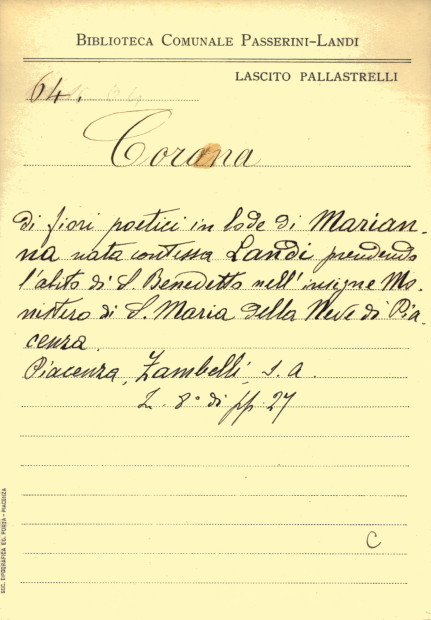 BIBLIOTECA COMUNALE PASSERINI-LANDI
LASCITO PALLASTRELLI
64.
Corana
di fiori poetici in lode di Marian-
na nata contessa Landi prendendo
l'abito di S. Benedetto nell'insigne Mo-
nistero di S. Maria della Neve di Pia-
cenza.
Piacenza, Zambelli, s. a.
In 8° di pp. 27
C
SOC. TIPOGRAFICA ED. PORTA - PIACENZA